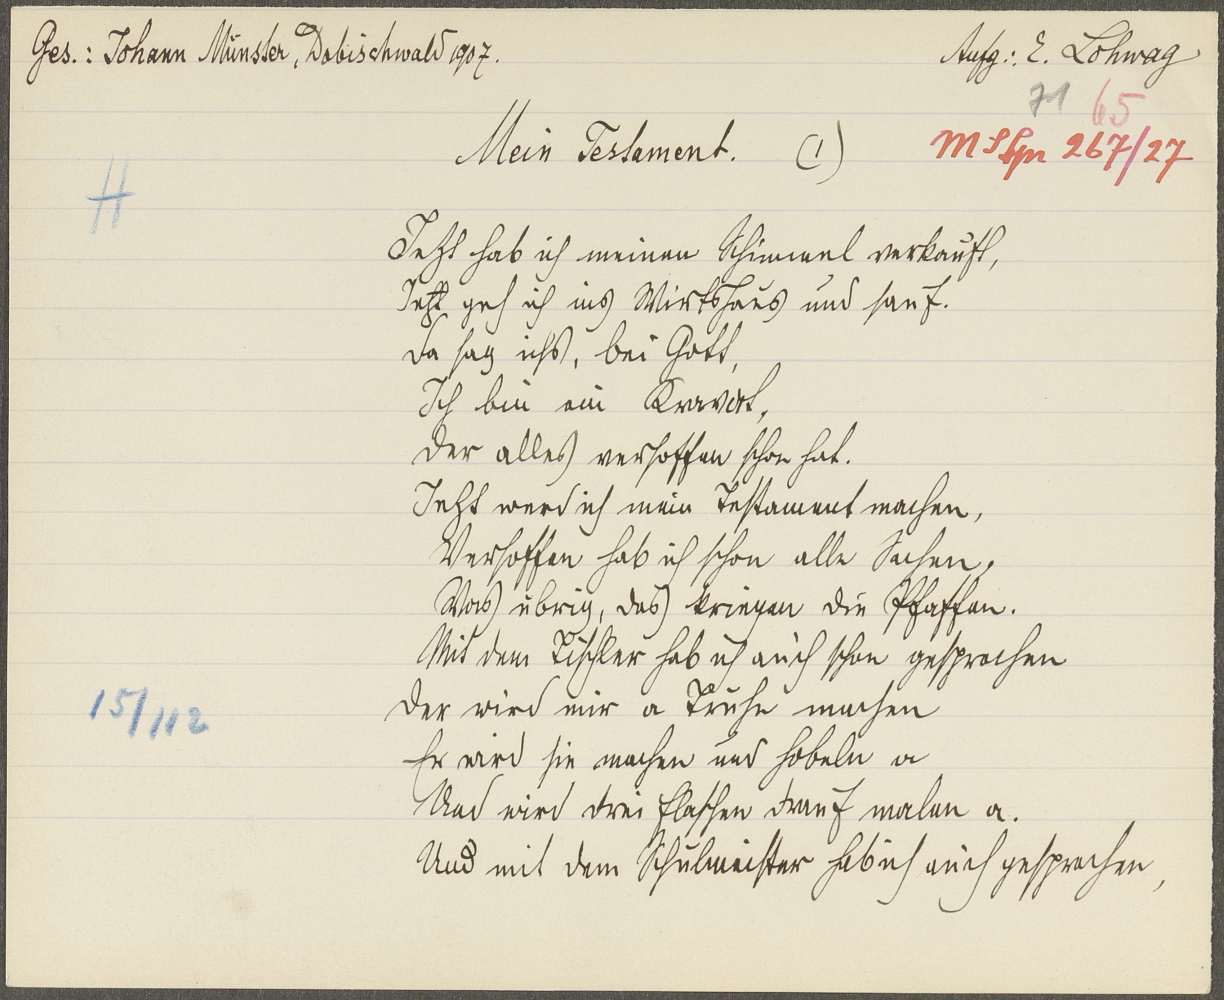 Ges.: Johann Münster, Dobischwald 1907.
Aufg.: E. Lohwag
71 65
Mein Testament. (1)
267/27
H
Jetzt hab ich meinen Schimmel verkauft,
Jetzt geh ich ins Wirtshaus und sauf.
Da sag ichs, bei Gott,
Ich bin ein Kravat,
Der alles versoffen schon hat.
Jetzt werd ich mein Testament machen,
Versoffen hab ich schon alle Sachen,
Was übrig, das kriegen die Pfaffen.
Mit dem Tischler hab ich auch schon gesprochen
Der wird mir a Truhe machen
15/112
Er wird sie machen und hobeln a
Und wird drei Flaschen drauf malen a.
Und mit dem Schulmeister hab ich auch gesprochen,